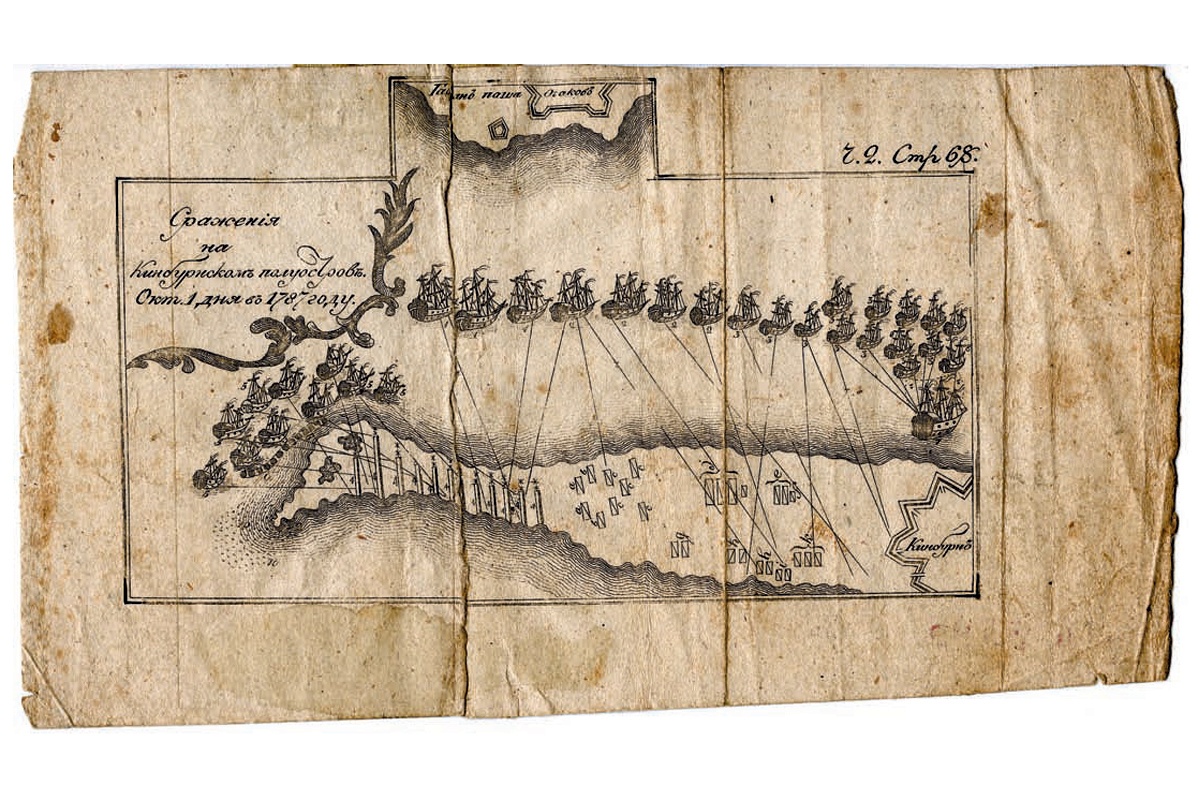 паша Очаковъ
Ч. 2. Стр 68.
Сраженія
на
Кинбурнскомъ полуостровѣ.
Окт. 1 дня въ 1787 году.
Кинбурнъ